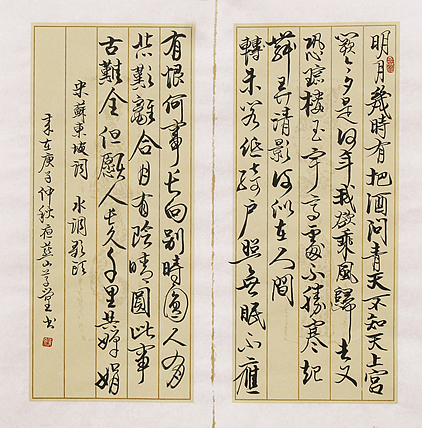 明月幾時有把酒問青天不知天上宮
闕今夕是何年我欲乘風歸去又
恐瓊樓玉宇高處不勝寒起
舞弄清影何似在人間
轉朱閣低綺戶照無眠不應
有恨何事長向别時圓人有
悲歡離合月有陰晴圓此事
古難全但願人長久千里共嬋娟
宋蘇東坡詞 水調歌頭
庚子仲秋 山 堂书